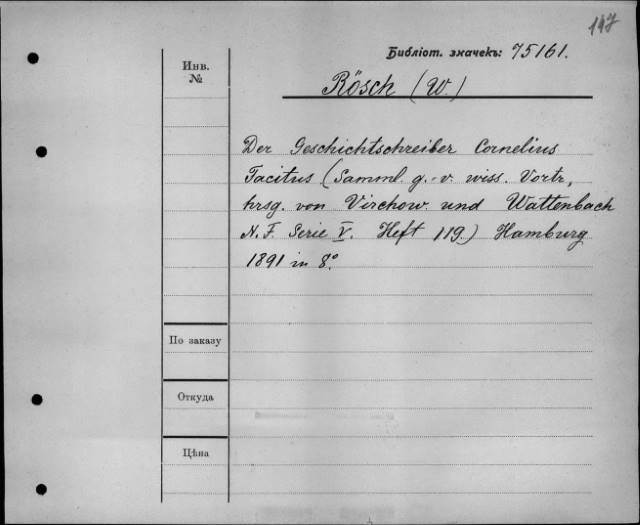 147
Библіот. значекъ: 75161.
Инв.
№
Rösch (W.)
Der Geschichtschreiber Cornelius
Tacitus (Samml. g.-v. wiss. Vortr,
hrsg. von Virchow und Wattenbach
N. F. Serie V. Heft 119.) Hamburg
1891 in 8°.
По заказу
Откуда
Цѣна